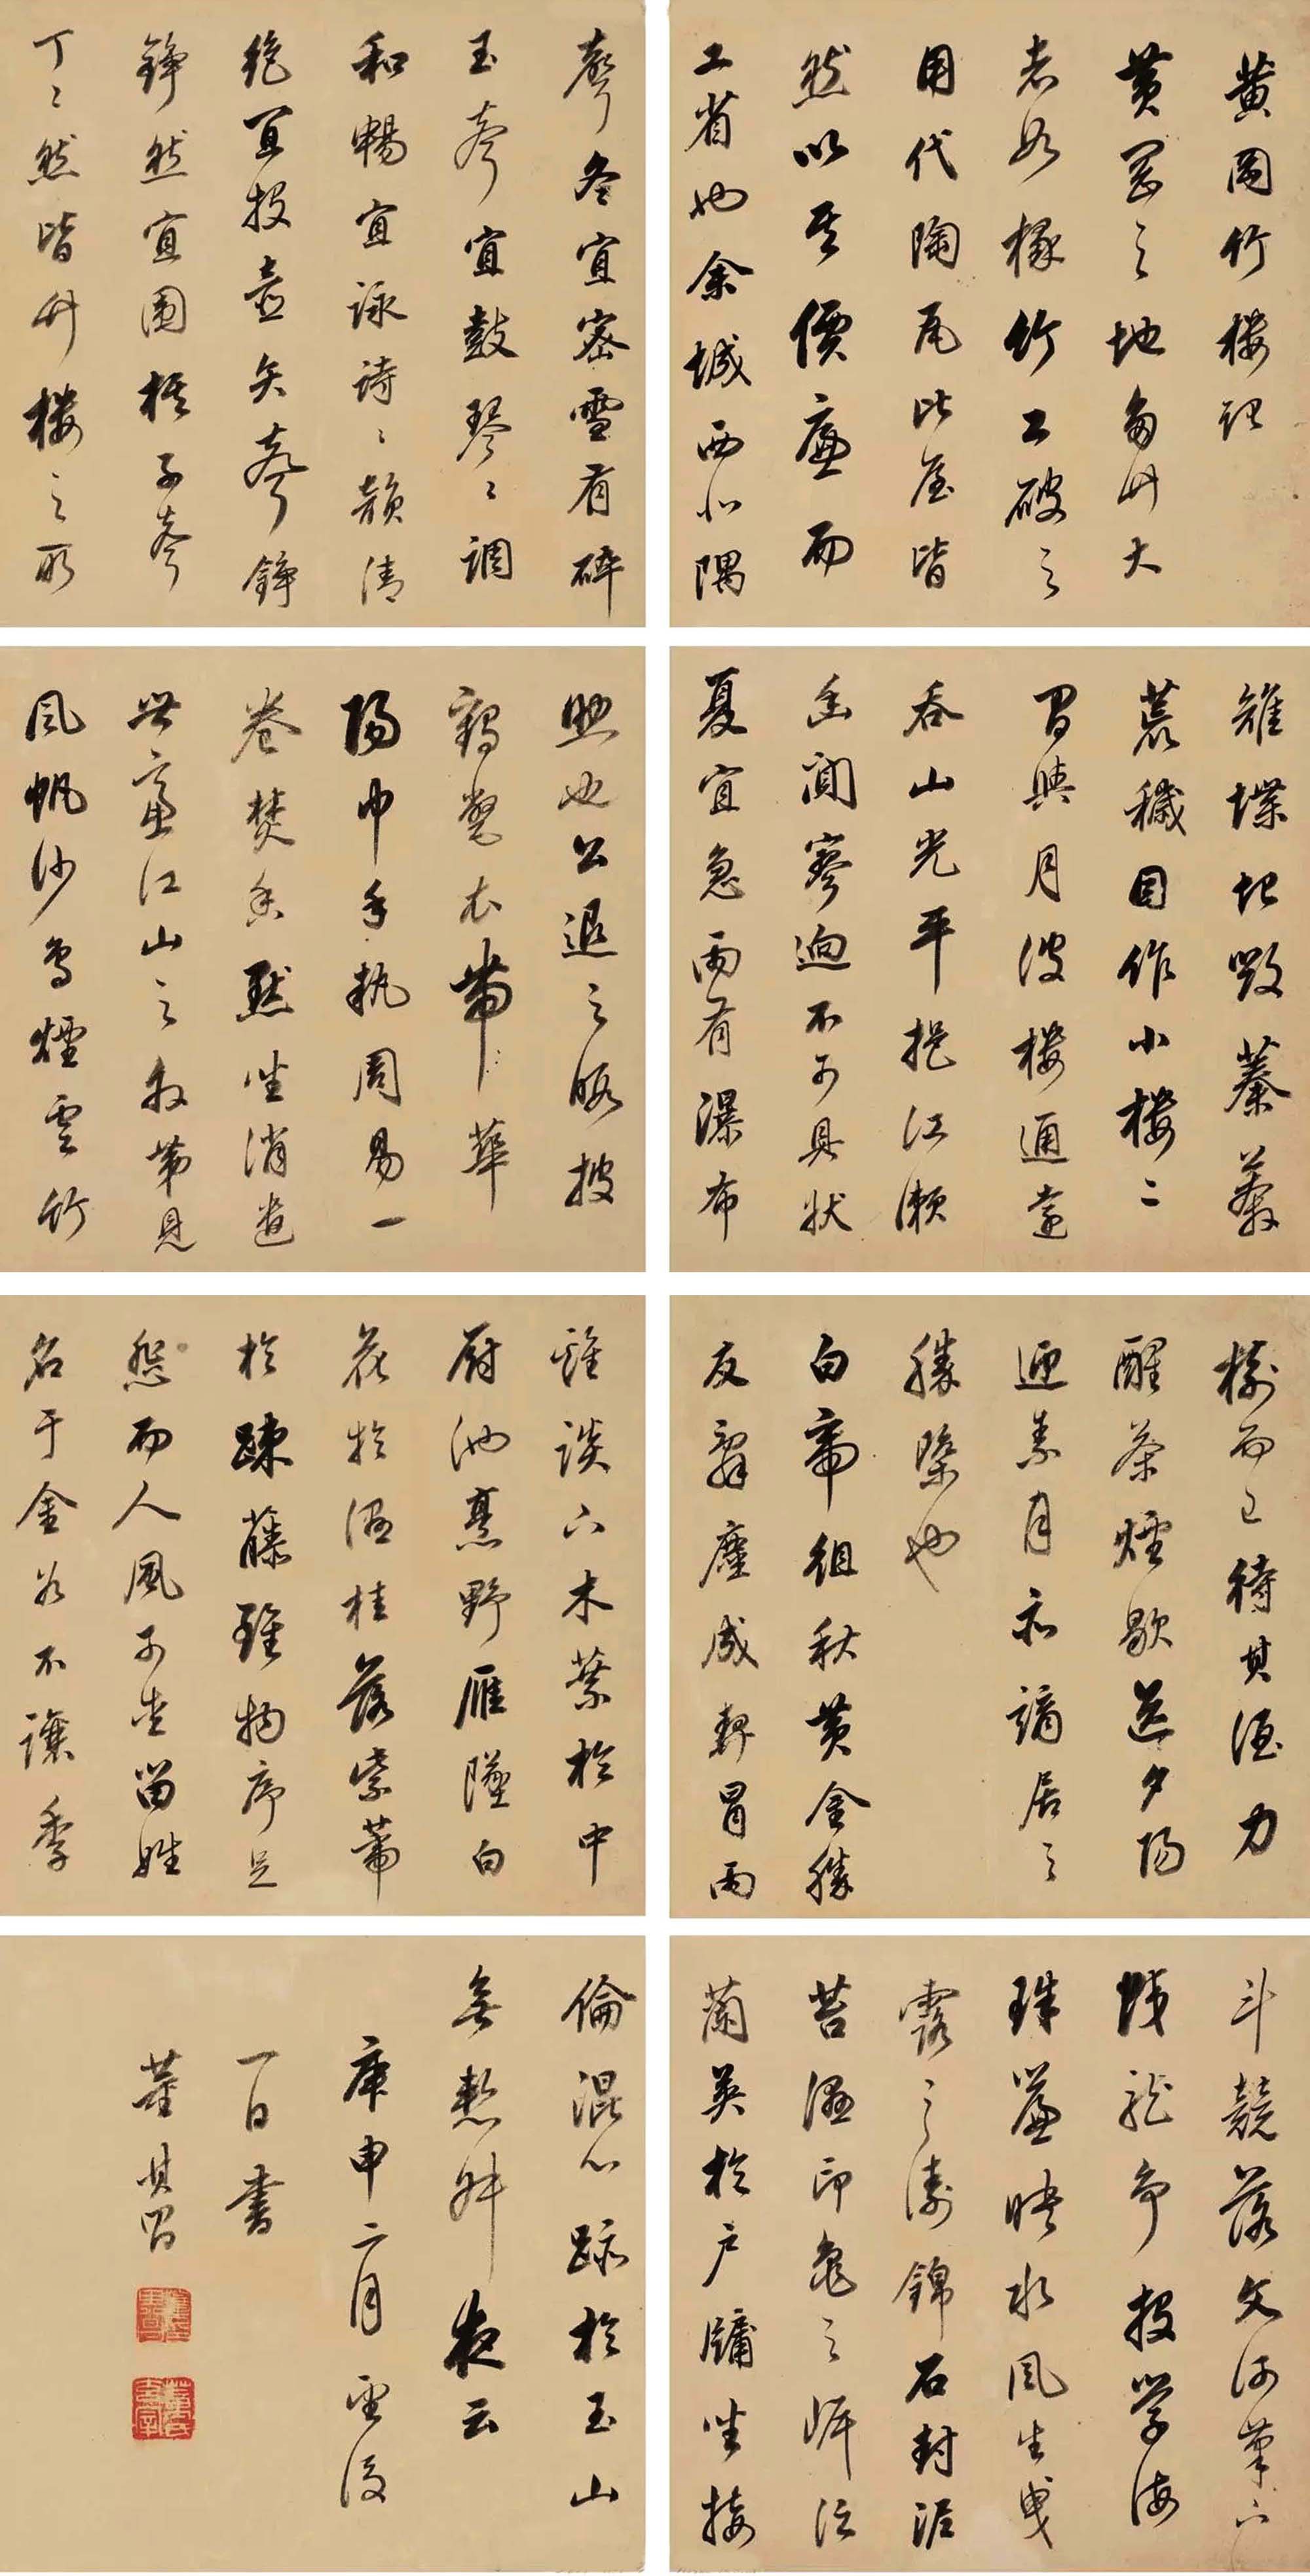 黄岡竹樓記
黄岡之地多竹大
者如椽竹工破之
用代陶瓦比屋皆
然以其價廉而
工省也余城西北隅
雉堞圮毀蓁莽
荒穢因作小樓二
間與月波樓通遠
吞山光平挹江瀨
幽闃寥迥不可具狀
夏宜急雨有瀑布
聲冬宜密雪有碎
玉聲宜鼓琴〻調
和暢宜詠詩〻韻清
絕宜投壺矢聲錚
錚然宜圍棋子聲
丁〻然皆竹樓之所
助也公退之暇披
鶴氅衣帶華
陽巾手執周易一
卷焚香默坐消遣
世慮江山之外第見
風帆沙鳥煙雲竹
樹而已待其酒力
醒茶煙歇送夕陽
迎素月亦謫居之
勝槩也
白帝徂秋黄金勝
友辭塵成契冒雨
斗競落文河筆下
蛟龍爭投學海
珠簾映水風生曳
露之濤錦石封泥
苔濕印龜之岸泛
蘭英於戶牖坐接
雞談下木葉於中
厨池烹野雁墜白
花於濕桂落紫蒂
於疎藤雖物序足
怨而人風可愛留姓
名于金谷不讓季
倫混心跡於玉山
無慙叔夜云
庚申二月望後
一日書
董其昌